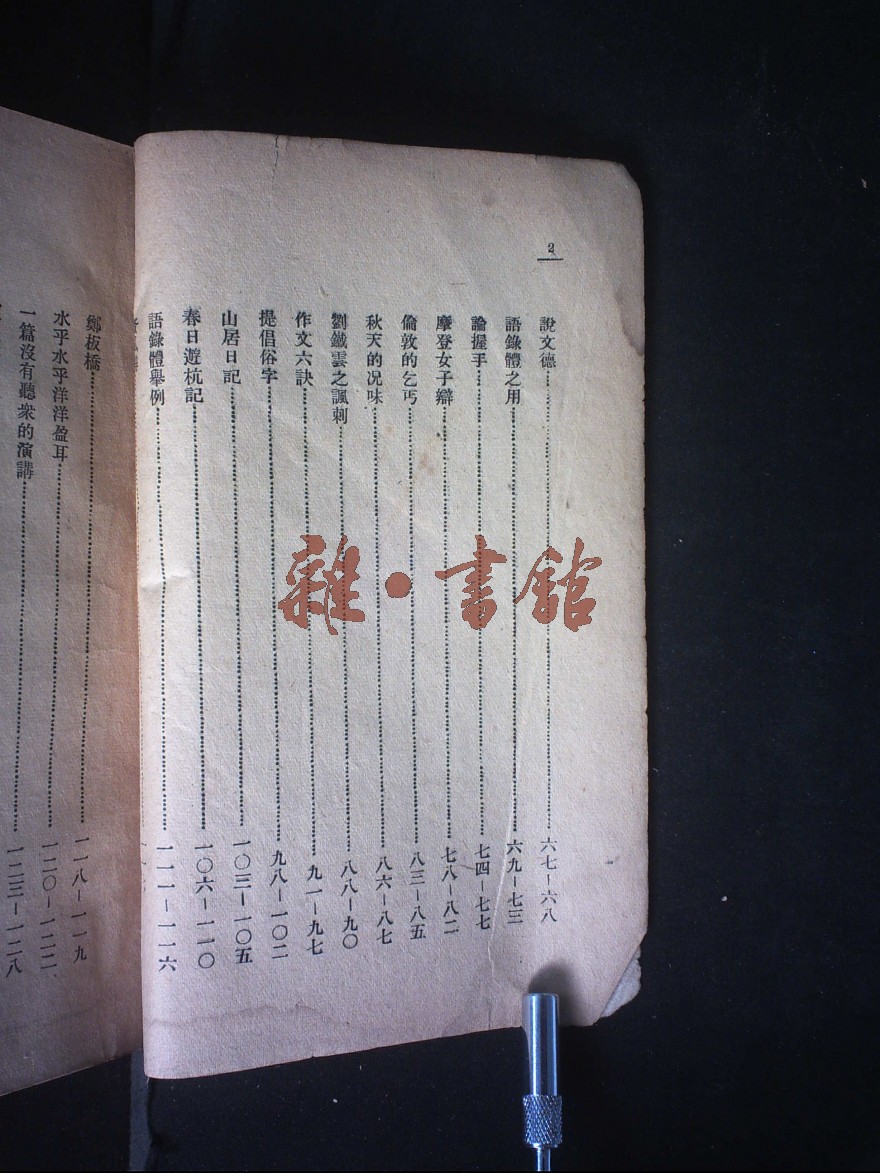 2
說文德 六七—六八
語錄體之用 六九—七三
論握手 七四—七七
摩登女子辯 七八—八二
倫敦的乞丐 八三—八五
秋天的況味 八六—八七
劉鐵雲之諷刺 八八—九〇
作文六訣 九一—九七
提倡俗字 九八—一〇二
山居日記 一〇三—一〇五
春日遊杭記 一〇六—一一〇
語錄體舉例 一一一—一一六
鄭板橋 一一八—一一九
水乎水乎洋洋盈耳 一二〇—一二二
一篇沒有聽衆的演講 一二三—一二八
雜·書館